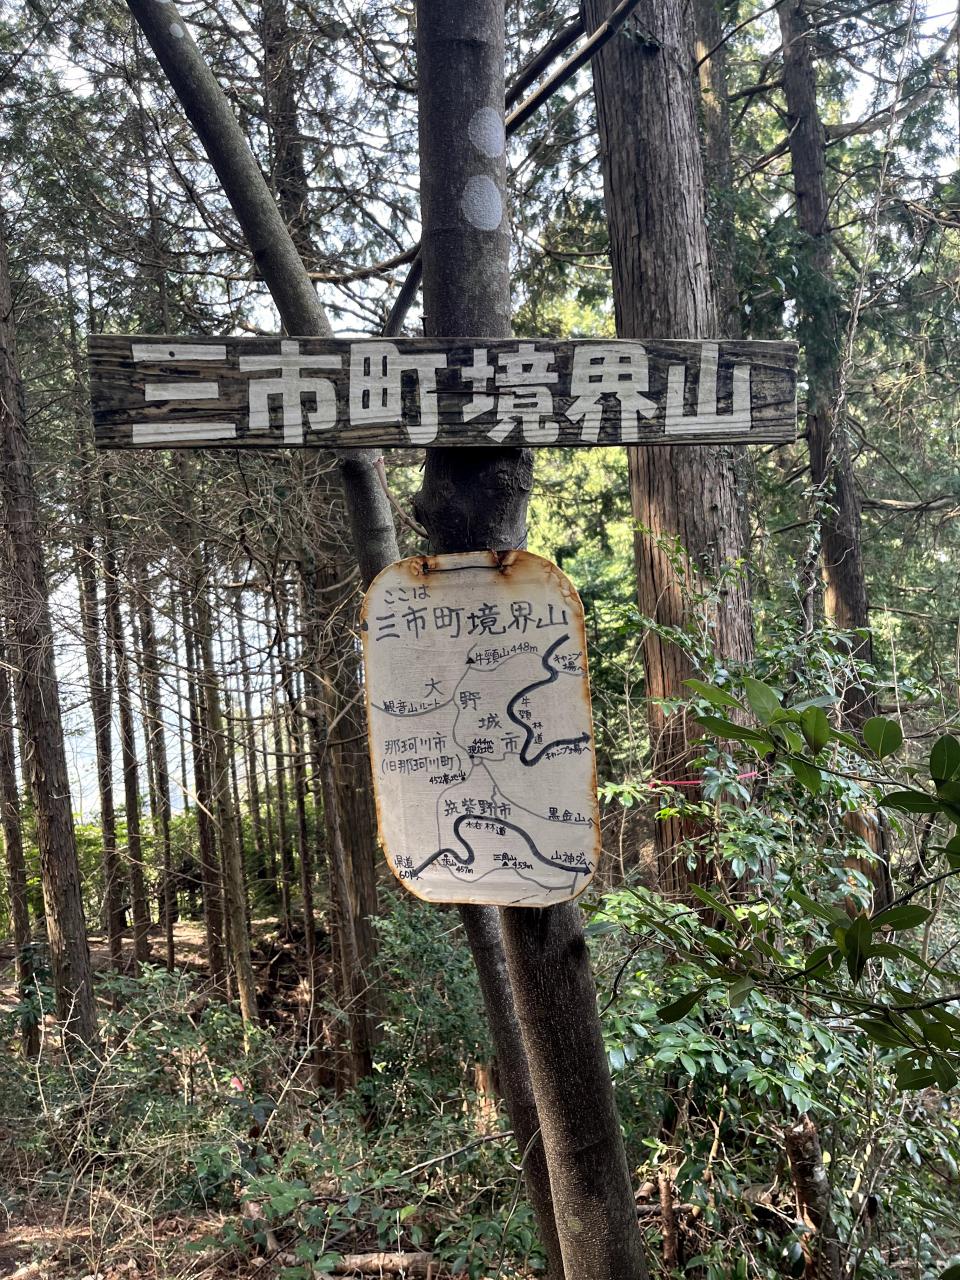 三市町境界山
ここは
三市町境界山
牛頸山448m
キャンプ
場へ
大野城市
観音山ルート
牛頸林道
那珂川市
(旧那珂川町)
444m
現在地
キャンプ場へ
452基地山
筑紫野市
林道
黒金山へ
県道
60線へ
457m
三角山
459m
山神ダムへ